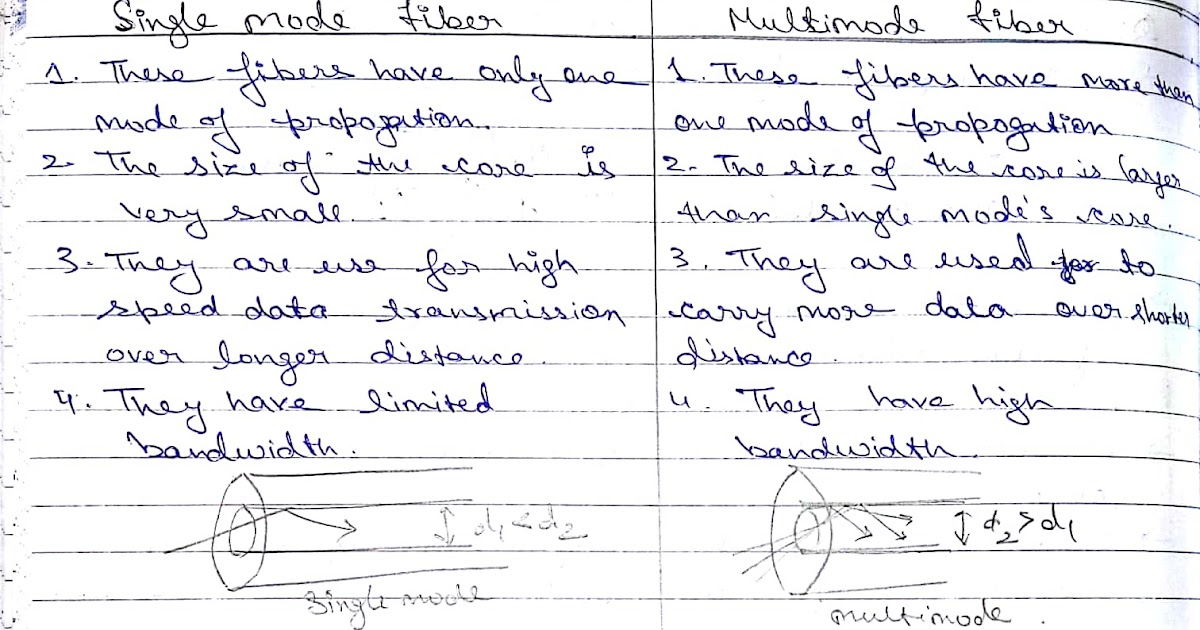 Single mode fiber
1. These fibers have only one
mode of propogation.
2. The size of the core is
very small.
3. They are use for high
speed data transmission
over longer distance.
4. They have limited
bandwidth.
d1 < d2
Single mode
Multimode fiber
1. These fibers have more than
one mode of propogation
2. The size of the core is larger
than single mode's core.
3. They are used for to
carry more data over shorter
distance.
4. They have high
bandwidth.
d2 > d1
multimode.